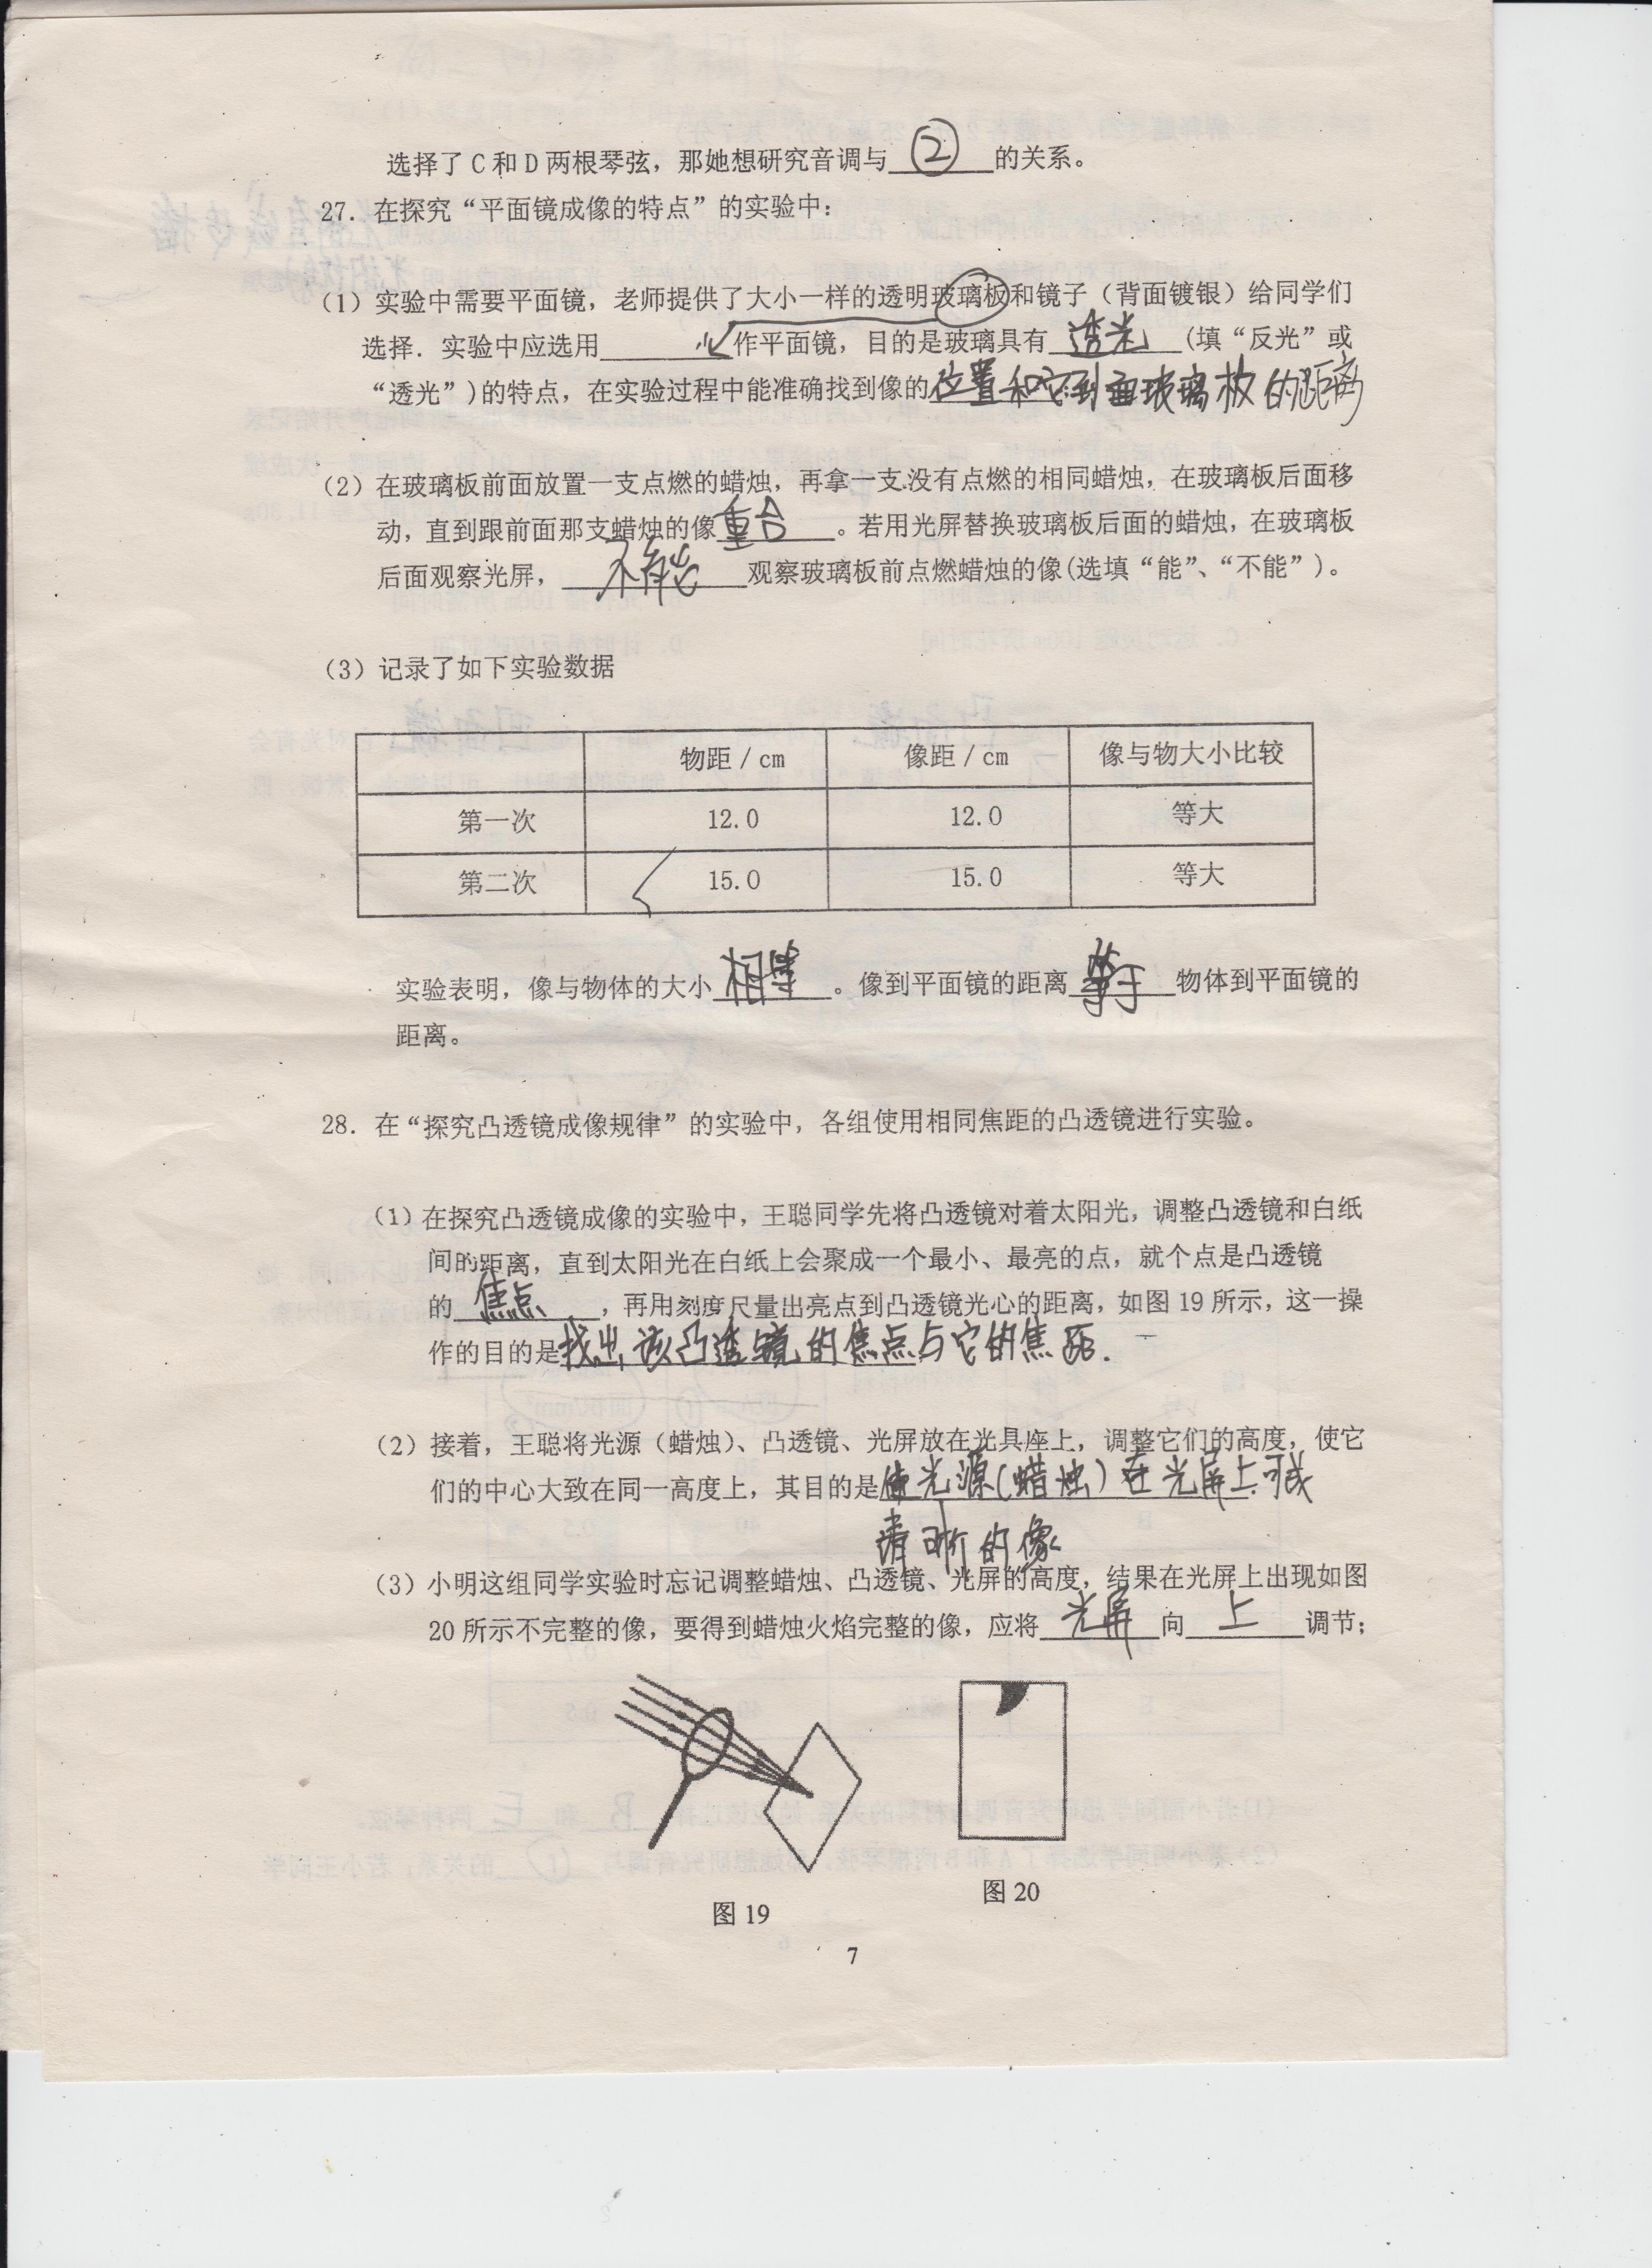 选择了 C 和 D 两根琴弦，那她想研究音调与 ② 的关系。
27．在探究“平面镜成像的特点”的实验中：
（1）实验中需要平面镜，老师提供了大小一样的透明玻璃板和镜子（背面镀银）给同学们
选择．实验中应选用 作平面镜，目的是玻璃具有 透光 (填“反光”或
“透光”)的特点，在实验过程中能准确找到像的位置和它到面玻璃板的距离
（2）在玻璃板前面放置一支点燃的蜡烛，再拿一支没有点燃的相同蜡烛，在玻璃板后面移
动，直到跟前面那支蜡烛的像 重合 。若用光屏替换玻璃板后面的蜡烛，在玻璃板
后面观察光屏， 不能 观察玻璃板前点燃蜡烛的像(选填“能”、“不能”)。
（3）记录了如下实验数据
物距／cm 像距／cm 像与物大小比较
第一次 12.0 12.0 等大
第二次 15.0 15.0 等大
实验表明，像与物体的大小 相等 。像到平面镜的距离 等于 物体到平面镜的
距离。
28．在“探究凸透镜成像规律”的实验中，各组使用相同焦距的凸透镜进行实验。
（1）在探究凸透镜成像的实验中，王聪同学先将凸透镜对着太阳光，调整凸透镜和白纸
间的距离，直到太阳光在白纸上会聚成一个最小、最亮的点，就个点是凸透镜
的 焦点 ，再用刻度尺量出亮点到凸透镜光心的距离，如图 19 所示，这一操
作的目的是找出该凸透镜的焦点与它的焦距．
（2）接着，王聪将光源（蜡烛）、凸透镜、光屏放在光具座上，调整它们的高度，使它
们的中心大致在同一高度上，其目的是使光源(蜡烛)在光屏上可成
清晰的像
（3）小明这组同学实验时忘记调整蜡烛、凸透镜、光屏的高度，结果在光屏上出现如图
20 所示不完整的像，要得到蜡烛火焰完整的像，应将 光屏 向 上 调节；
图 19
图 20
7